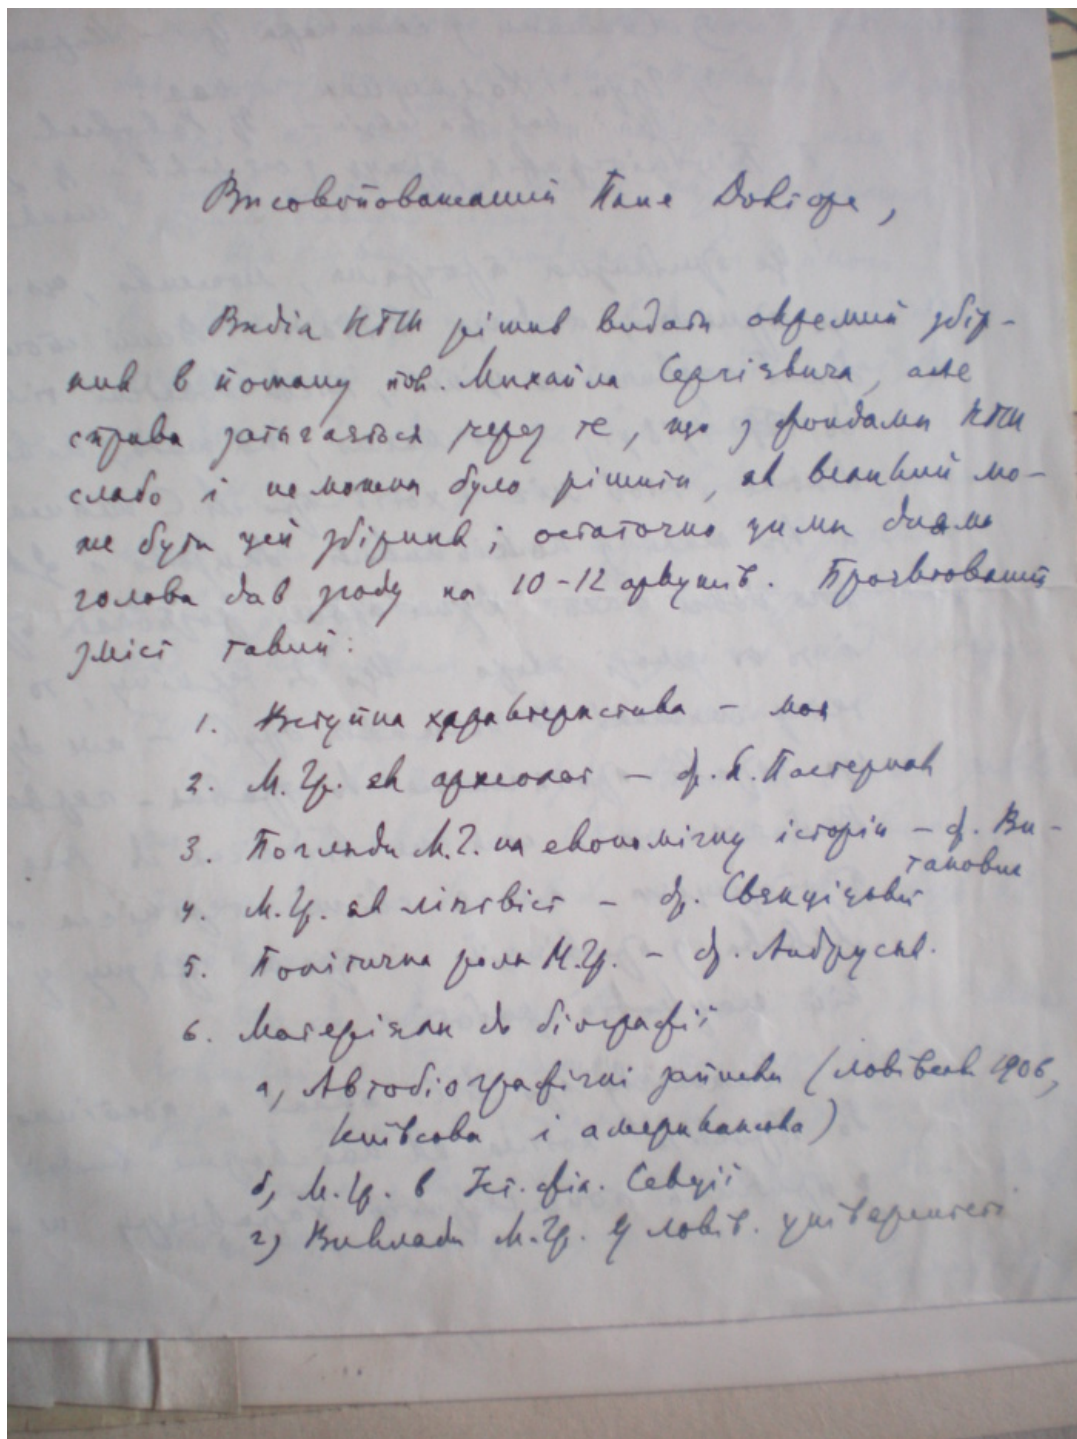 Високоповажаний Пане Докторе,
Виділ НТШ рішив видати окремий збір-
ник в пошану пок. Михайла Сергієвича, але
справа затягається через те, що з фондами НТШ
слабо і не можна було рішити, як великий мо-
же бути цей збірник; остаточно цими днями
голова дав згоду на 10-12 аркушів. Проєктований
зміст такий:
1. Вступна характеристика – моя
2. М. Гр. як археолог – др. Я. Пастернак
3. Погляди М. Г. на економічну історію – др. Ви-
танович
4. М. Гр. як лінгвіст – др. Свєнціцький
5. Політична роля М. Гр. – др. Андрусяк.
6. Матеріяли до біографії
а, Автобіографічні записки (львівська 1906,
київська і американська)
б, М. Гр. в Іст. філ. Секції
г) Виклади М. Гр. у львів. університеті